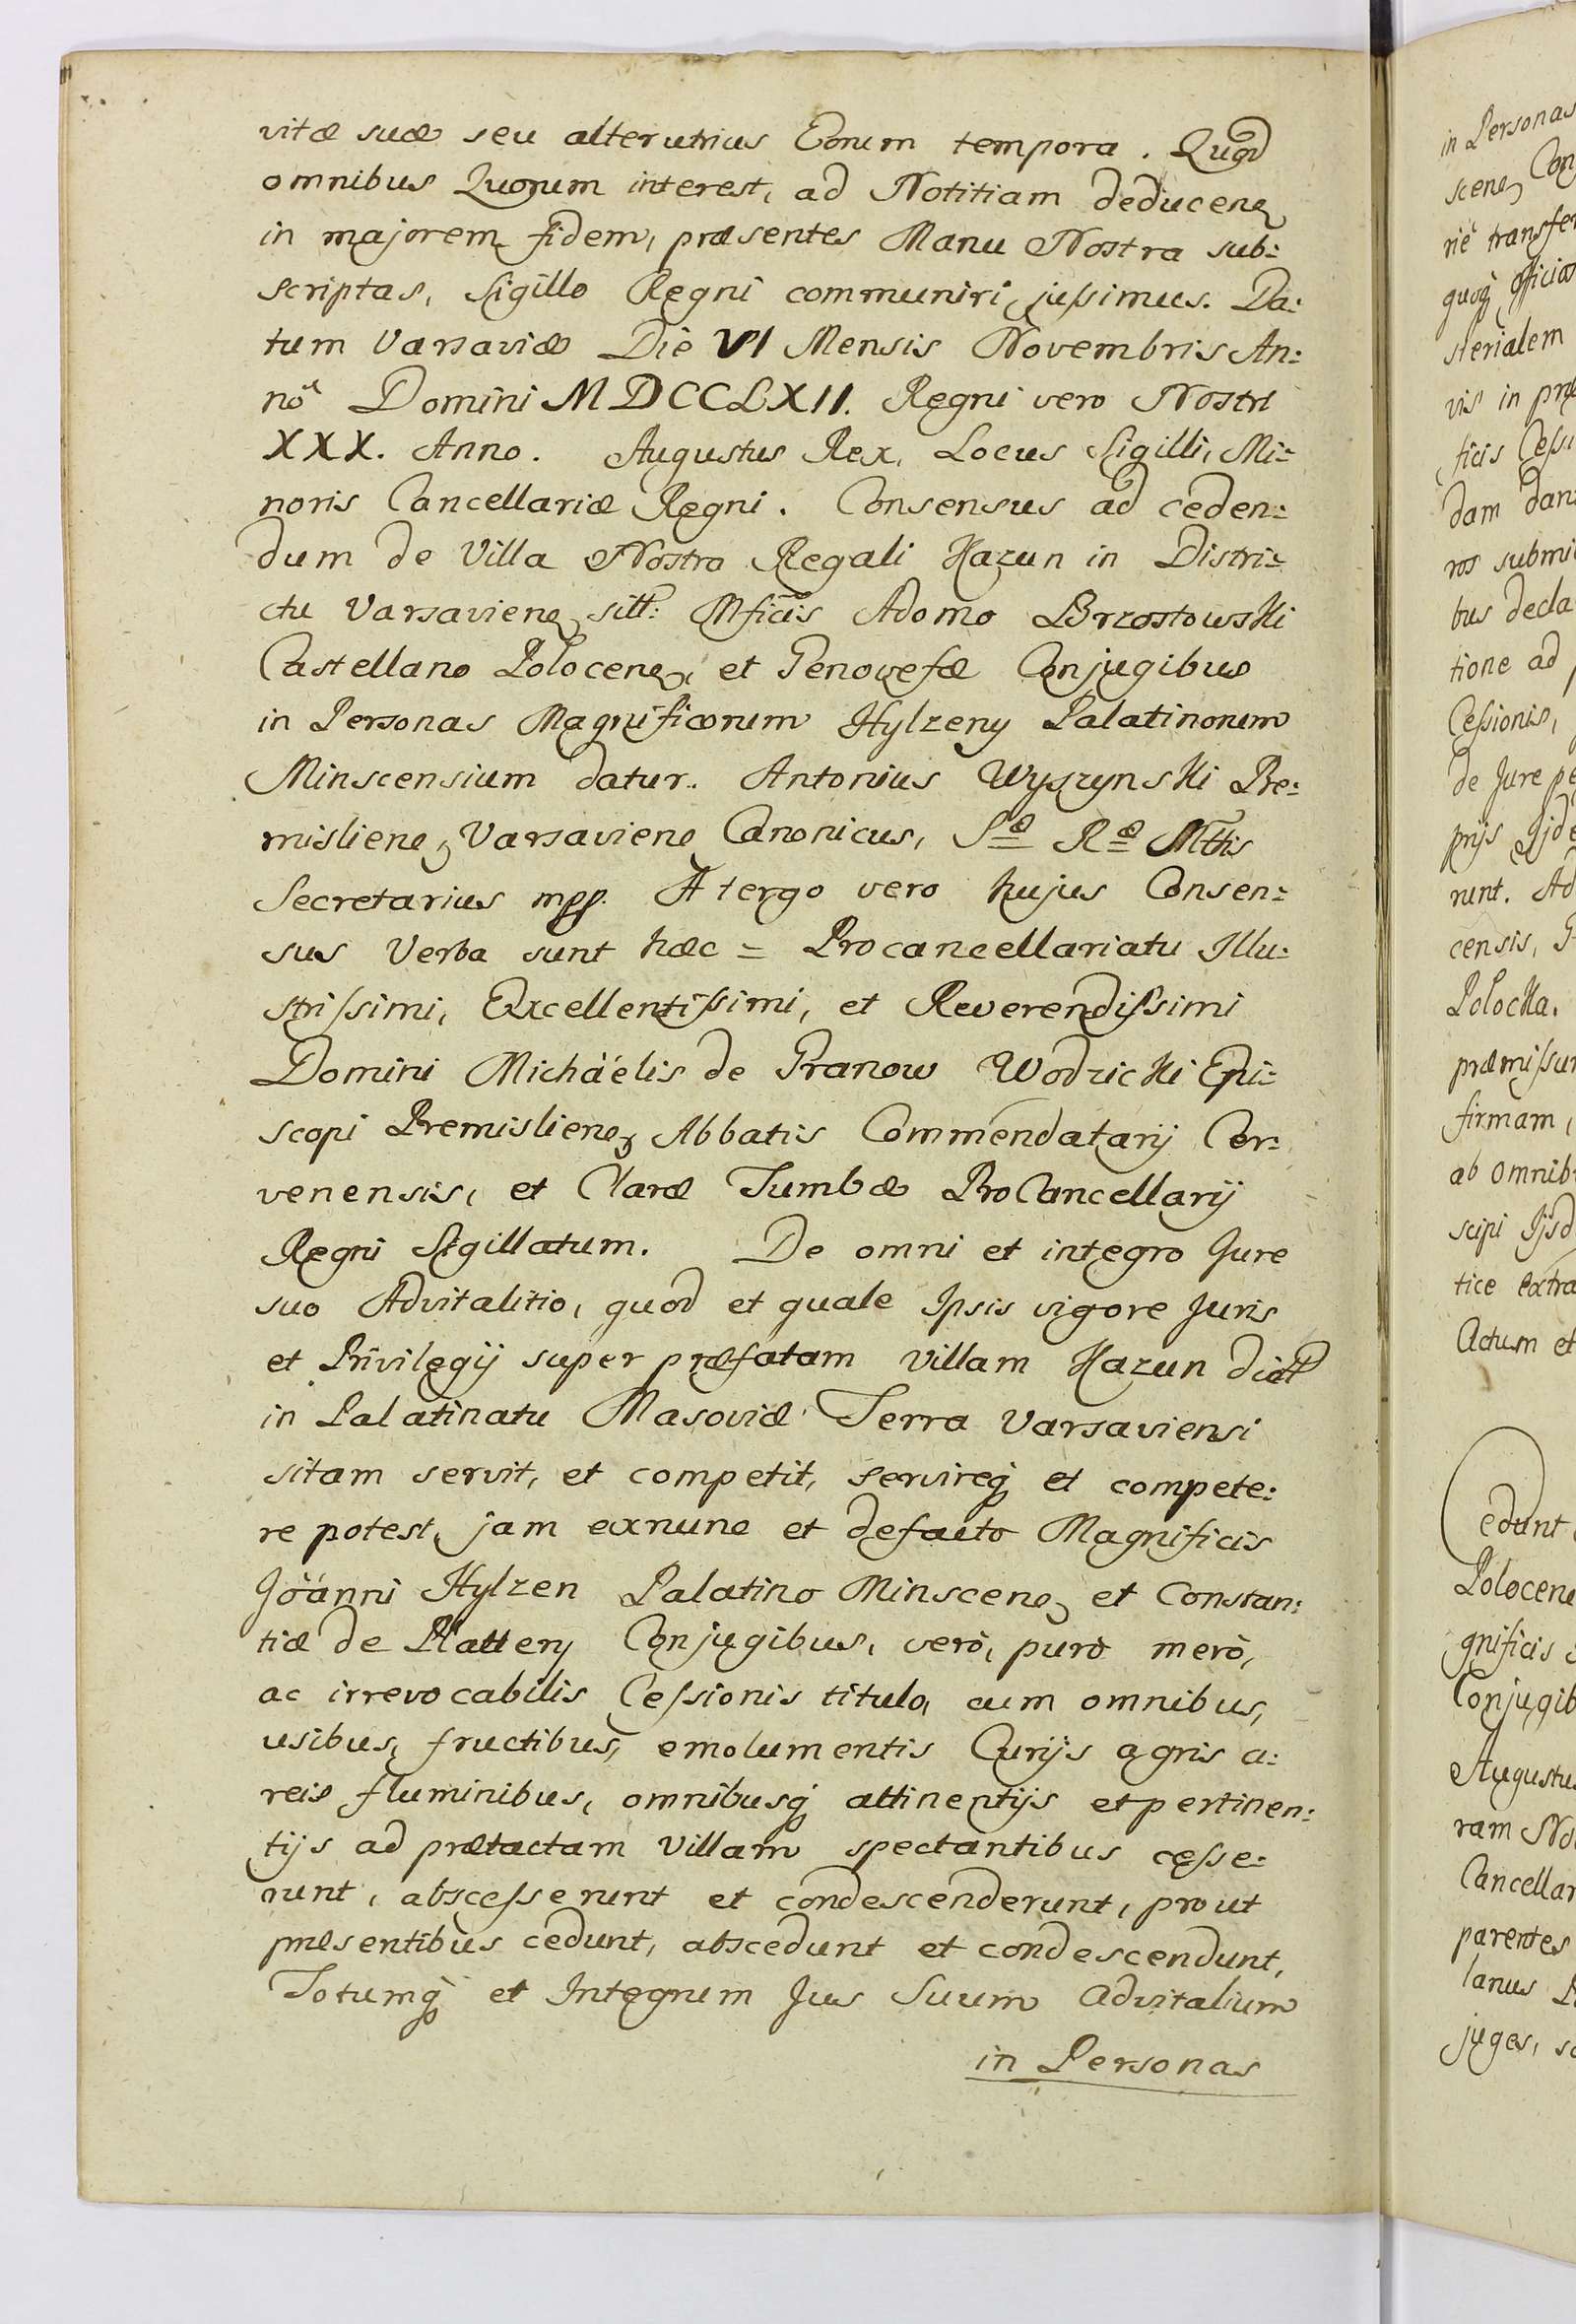 vitæ suæ seu alterutrius Eorum tempora. Quod
omnibus Quorum interest, ad Notitiam deducen
in majorem fidem, præsentes Manu Nostra sub:
scriptas, Sigillo Regni communiri jussimus. Da:
tum Varsaviæ Die VI Mensis Novembris An:
nô Domini MDCCLXII. Regni vero Nostri
XXX. Anno. Augustus Rex, Locus Sigilli, Mi:
noris Cancellariæ Regni. Consensus ad ceden:
dum de Villa Nostra Regali Kazun in Distri:
ctu Varsavien sitt: Mficis Adamo Brzostowski
Castellano Polocen, et Genovefæ Conjugibus
in Personas Magnificorum Hylzeny Palatinorum
Minscensium datur. Antonius Wyszynski Pre:
mislien, Varsavien Canonicus, Sæ Ræ Mttis
Secretarius mpp. A tergo vero hujus Consen:
sus Verba sunt hæc = Procancellariatu Illu:
strissimi, Excellentissimi, et Reverendissimi
Domini Michäélis de Granow Wodzicki Epi:
scopi Premislien, Abbatis Commendatarij Cer:
venensis, et Claræ Tumbæ ProCancellarij
Regni Sigillatum. De omni et integro Jure
suo Advitalitio, quod et quale Ipsis vigore Juris
et Privilegij super præfatam villam Kazun dict
in Palatinatu Masoviæ Terra Varsaviensi
sitam servit, et competit, servireq et compete:
re potest, jam exnunc et defacto Magnificis
Joänni Hylzen Palatino Minscen, et Constan:
tiæ de Plattery Conjugibus, verò, purò merò,
ac irrevocabilis Cessionis titulo, cum omnibus,
usibus, fructibus, emolumentis Curijs agris a:
reis fluminibus, omnibusq attinentijs et pertinen:
tijs ad prætactam Villam spectantibus cesse:
runt, abscesserunt et condescenderunt, prout
præsentibus cedunt, abscedunt et condescendunt,
Totumq et Integrum Jus Suum Advitalium
in Personas
in Personas
scen, Con
riè transfer
quoq officios
sterialem
vis in præ
ficis Cessi
dam dan
ros submi
bus decla
tione ad
Cessionis,
de Jure pe
prijs Ijde
runt. Ad
censis, G
Polocka.
præmissur
firmam,
ab omnib
scipi Ijsd
tice extra
Actum et
Cedunt
Polocen
gnificis
Conjugib
Augustus
ram No
Cancellar
parentes
lanus P
juges, so